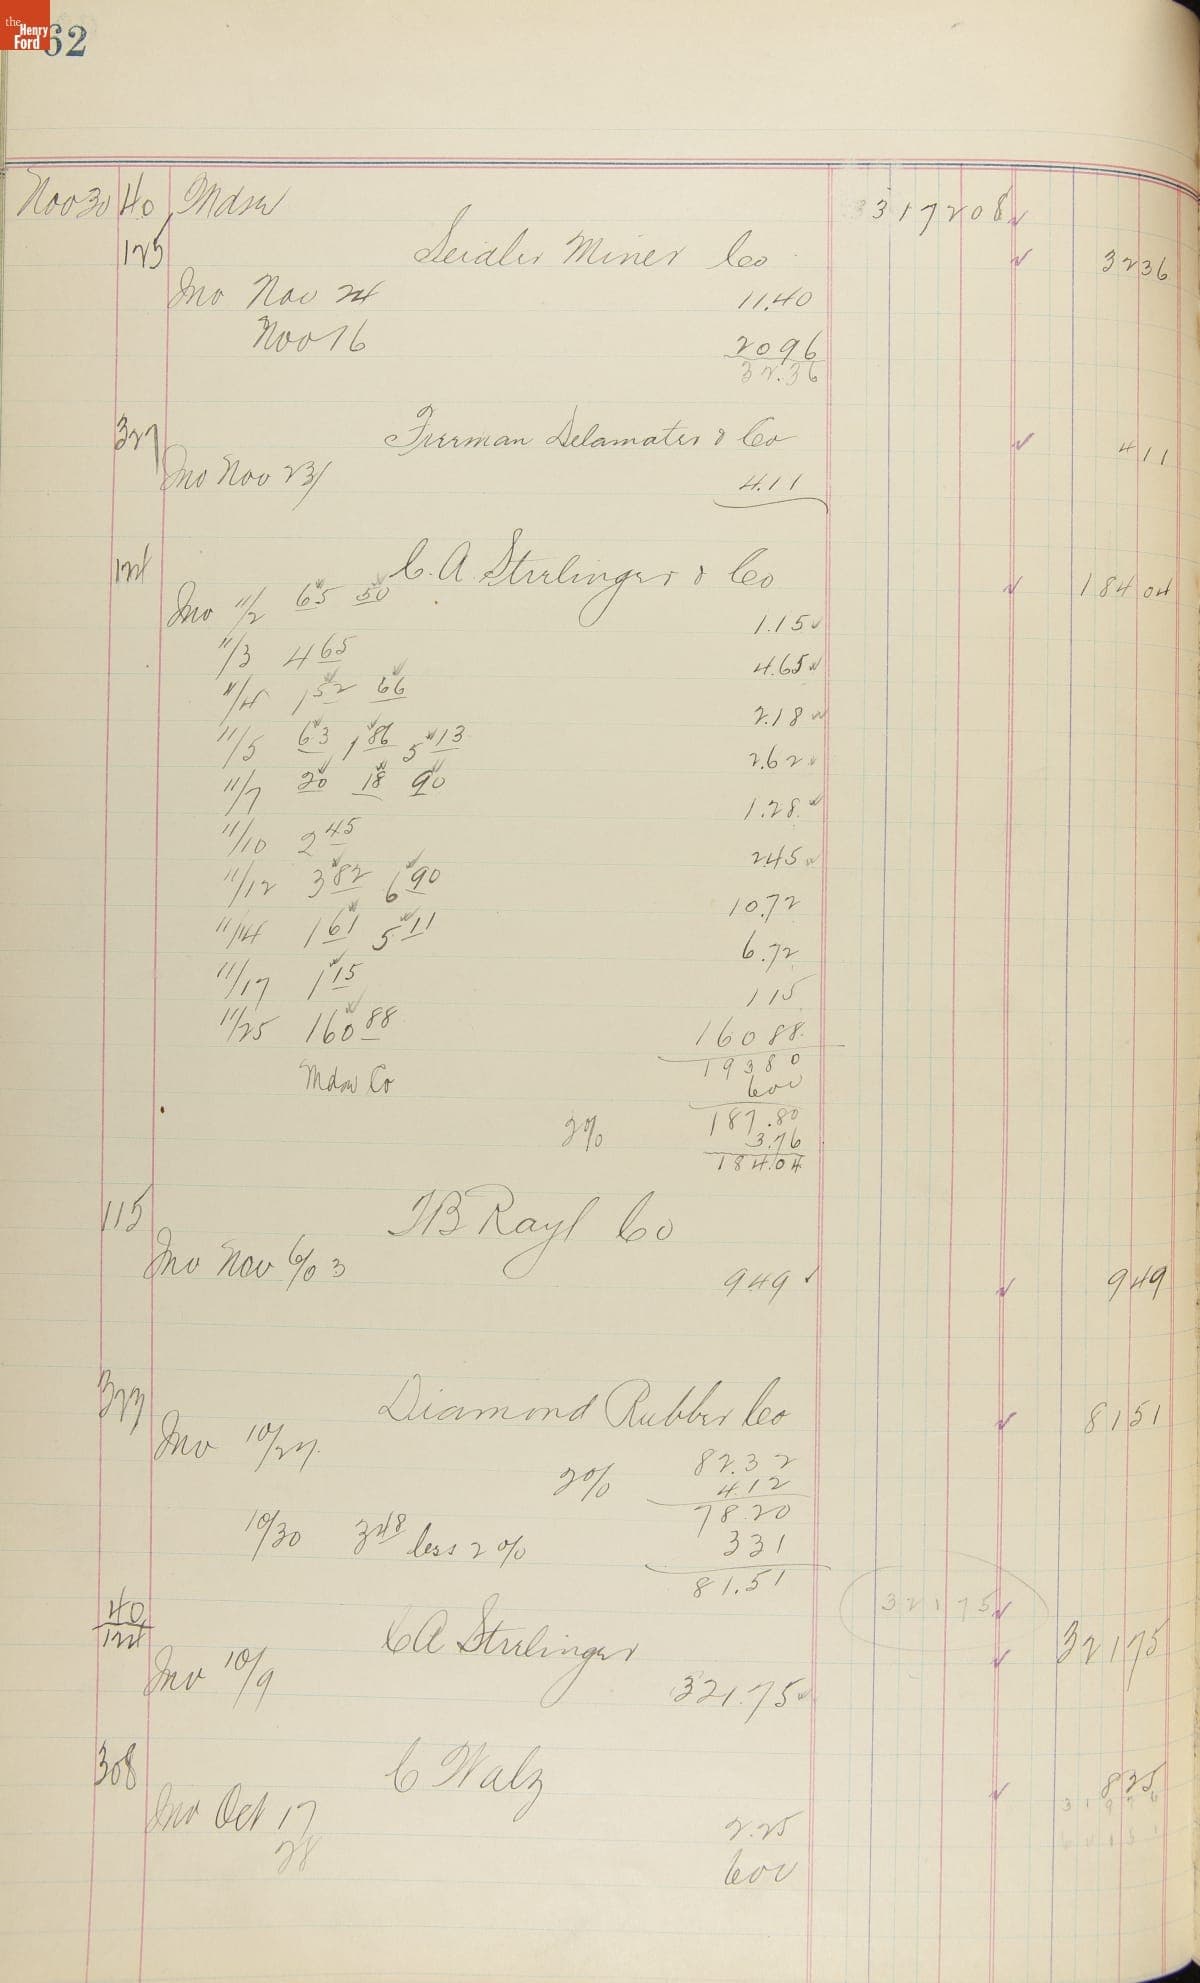 the Henry Ford
62
Nov 30 40 Mdse 3317208
125 Seidler Miner Co 3236
Inv Nov 24 11.40
Nov 16 2096
32.36
327 Freeman Delamater & Co 411
Inv Nov 23 4.11
124 C. A. Strelinger & Co 184 04
Inv 11/2 65 50 1.15
11/3 4 65 4.65
11/4 1 52 66 2.18
11/5 63 1 86 5 13 2.62
11/7 20 18 90 1.28
11/10 2 45 245
11/12 3 82 6 90 10.72
11/14 1 61 5 11 6.72
11/17 1 15 115
11/25 160 88 16088
19380
Mdse Co 600
187.80
2% 3.76
184.04
115 TB Rayl Co
Inv Nov 6/03 949 949
323 Diamond Rubber Co 8151
Inv 10/27 82.32
2% 4.12
78.20
10/30 3 48 less 2% 331
81.51
32175
40
124 CA Strelinger 32175
Inv 10/9 321.75
308 C Walz 825
Inv Oct 17 2.25
28 600